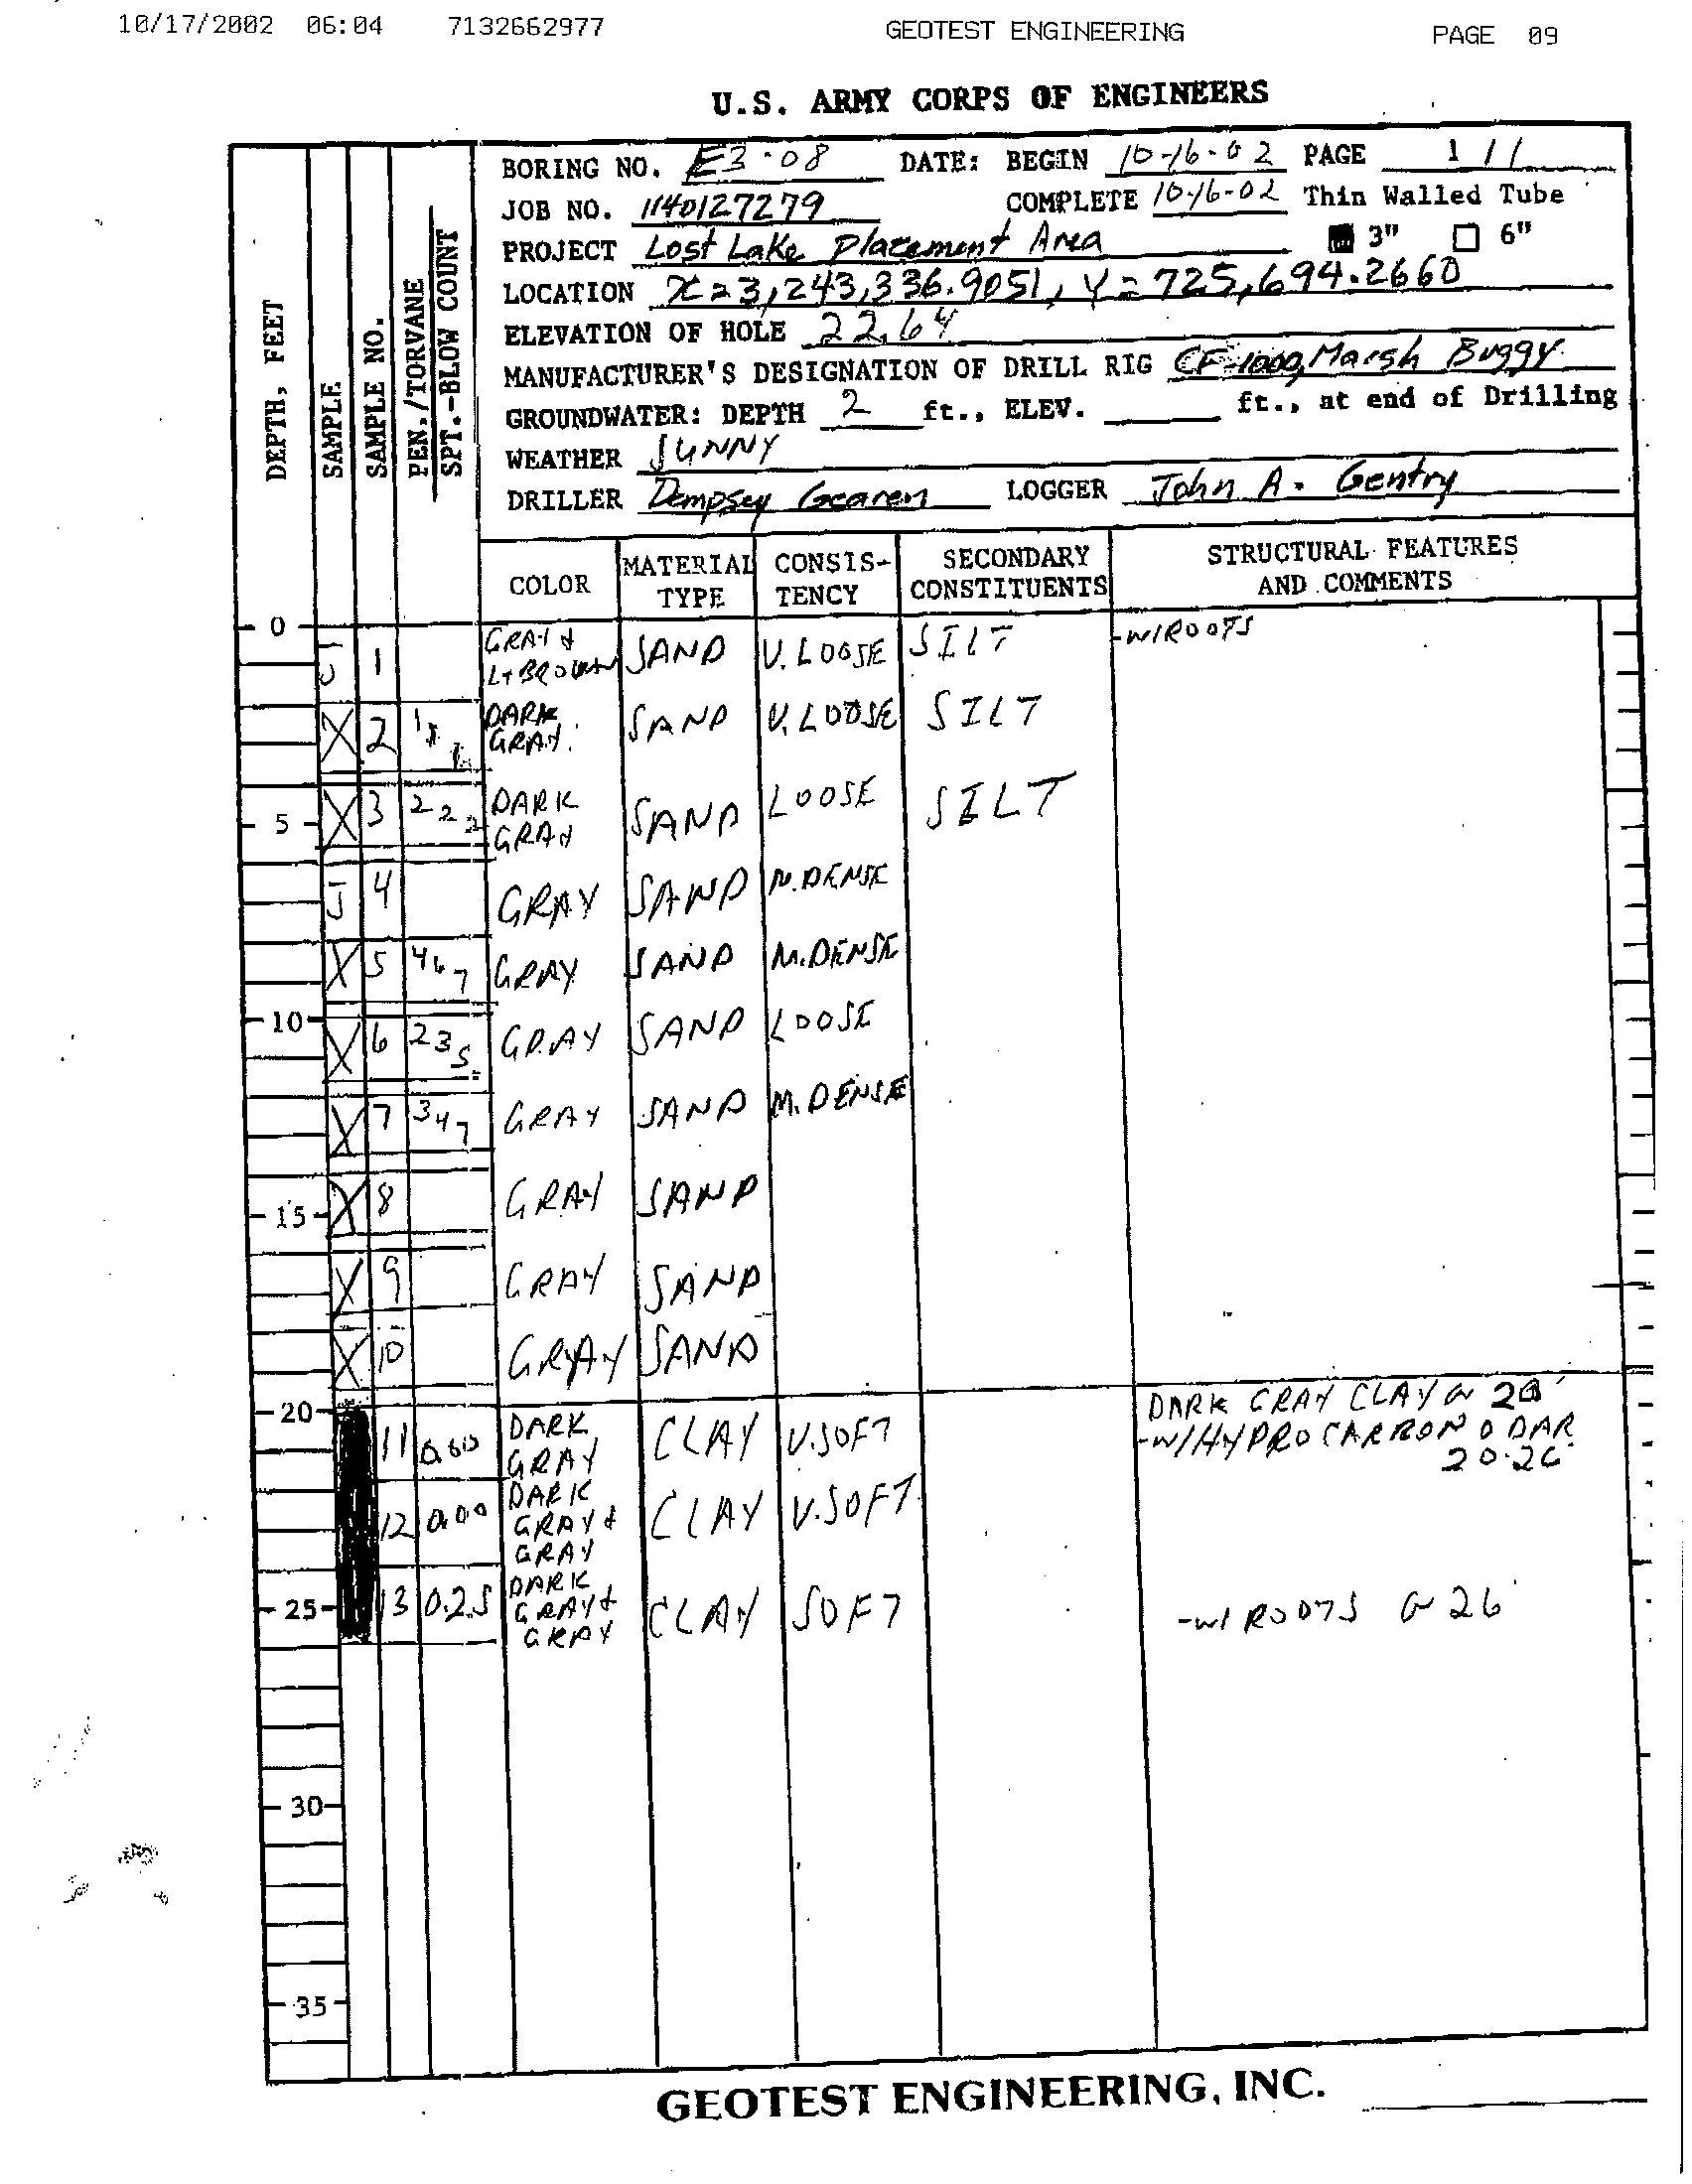 10/17/2002 06:04 7132662977 GEOTEST ENGINEERING PAGE 09
U.S. ARMY CORPS OF ENGINEERS
BORING NO. E3-08 DATE: BEGIN 10-16-02 PAGE 1 / 1
JOB NO. 1140127279 COMPLETE 10-16-02 Thin Walled Tube
PROJECT Lost Lake Placement Area 3" 6"
LOCATION X=3,243,336.9051, Y=725,694.2660
ELEVATION OF HOLE 22.64
MANUFACTURER'S DESIGNATION OF DRILL RIG CF-1000, Marsh Buggy
GROUNDWATER: DEPTH 2 ft., ELEV. ft., at end of Drilling
WEATHER SUNNY
DRILLER Dempsey Gearen LOGGER John A. Gentry
DEPTH, FEET
SAMPLE
SAMPLE NO.
PEN./TORVANE
SPT.-BLOW COUNT
COLOR MATERIAL TYPE CONSIS-TENCY SECONDARY CONSTITUENTS STRUCTURAL FEATURES AND COMMENTS
0
J 1 GRAY & LT BROWN SAND V. LOOSE SILT -W/ROOTS
X 2 DARK GRAY SAND V. LOOSE SILT
5 X 3 2 2 2 DARK GRAY SAND LOOSE SILT
J 4 GRAY SAND M. DENSE
X 5 4 6 7 GRAY SAND M. DENSE
10 X 6 2 3 5 GRAY SAND LOOSE
X 7 3 4 7 GRAY SAND M. DENSE
15 X 8 GRAY SAND
X 9 GRAY SAND
X 10 GRAY SAND
20 11 DARK GRAY CLAY V. SOFT DARK GRAY CLAY @ 20'
-W/HYDROCARBON ODAR
20-26
12 0.00 DARK GRAY & GRAY CLAY V. SOFT
25 13 0.25 DARK GRAY & GRAY CLAY SOFT -W/ ROOTS @ 26'
30
35
GEOTEST ENGINEERING, INC.